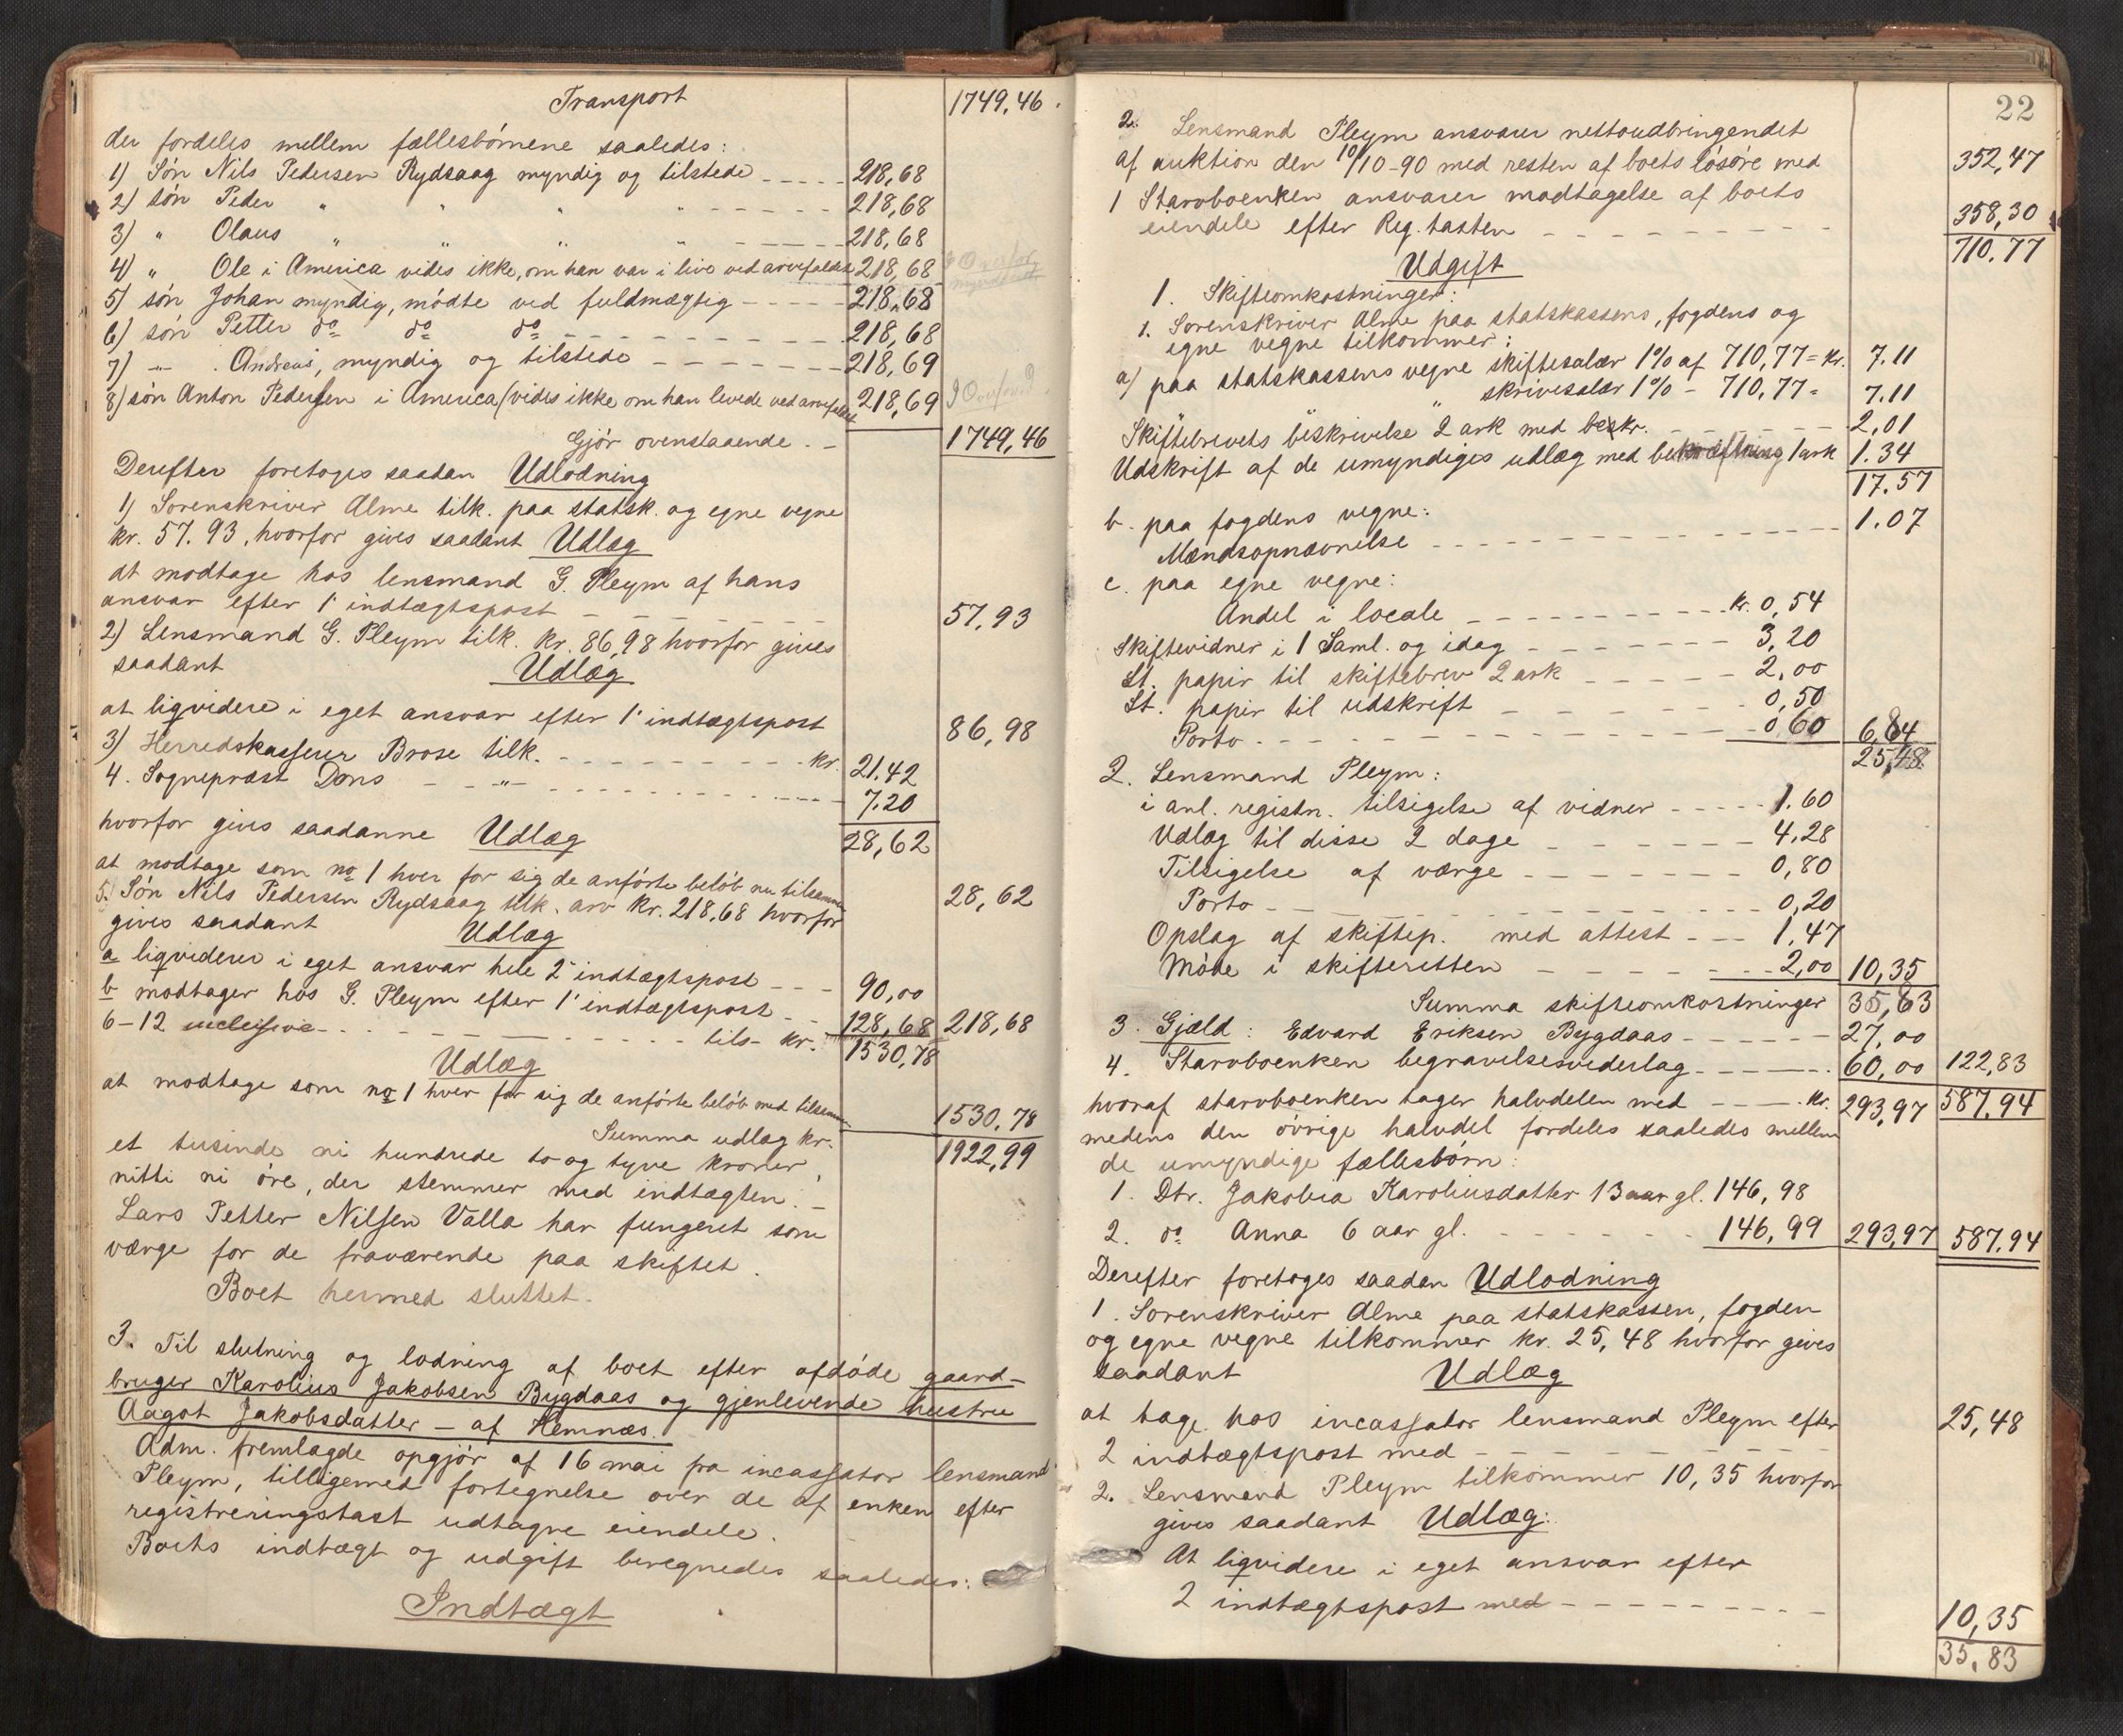 Transport 1749,46.
der fordeles mellem fællesbörnene saaledes:
1) Sön Nils Pedersen Rydsaag myndig og tilstede - - - - - 218,68
2) sön Peder " " " " - - - - - 218,68
3) " Olaus " " " " - - - - - 218,68
4) " Ole i America vides ikke, om han var i live ved arvefaldet 218,68
5) sön Johan myndig, mödte ved fuldmægtig - - - - - 218,68
6) sön Petter do do do - - - - - 218,68
7) -"- Andreas, myndig og tilstede - - - - - 218,69
8) sön Anton Pedersen i America (vides ikke om han levede ved arvefaldet 218,69
Gjör ovenstaaende. - 1749,46
Derefter foretoges saadan Udlodning
1) Sorenskriver Alme tilk. paa statsk. og egne vegne
kr. 57.93, hvorfor gives saadant Udlæg
at modtage hos lensmand G. Pleym af hans
ansvar efter 1' indtægtspost - - - - - 57,93
2) Lensmand G. Pleym tilk. kr. 86,98 hvorfor gives
saadant Udlæg
at liqvidere i eget ansvar efter 1' indtægtspost 86,98
3) Herredskasserer Brose tilk. - - - - - kr. 21.42
4. Sognepræst Dons - - " - - - - - 7.20
hvorfor gives saadanne Udlæg 28,62
at modtage som no 1 hver for sig de anförte belöb nu tilsammen 28,62
5. Sön Nils Pedersen Rydsaag tilk. arv kr. 218,68 hvorfor
gives saadant Udlæg
a liqviderer i eget ansvar hele 2' indtægtspost - - - 90,00
b modtager hos G. Pleym efter 1' indtægtspost - - 128,68 218,68
6-12 inclusive - - - - - tils- kr. 1530,78
Udlæg
at modtage som no 1 hver for sig de anförte belöb med tilsammen 1530,78
Summa udlæg kr. 1922,99
et tusinde ni hundrede to og tyve kroner,
nitti ni öre, der stemmer med indtægten. -
Lars Petter Nilsen Valla har fungeret som
værge for de fraværende paa skiftet.
Boet hermed sluttet.
3. Til slutning og lodning af boet efter afdöde gaard-
bruger Karolius Jakobsen Bygdaas og gjenlevende hustru
Aagot Jakobsdatter - af Hemnæs.
Adm. fremlagde opgjör af 16 mai fra incassator lensmand
Pleym, tilligemed fortegnelse over de af enken efter
registreringstaxt udtagne eiendele.
Boets indtægt og udgift beregnedes saaledes:
Indtægt
22
2. Lensmand Pleym ansvarer nettoudbringendet
af auktion den 10/10-90 med resten af boets lösöre med 352,47
1 Starvboenken ansvarer modtagelse af boets
eiendele efter Reg. taxten - - - - - 358,30
710,77
Udgift
1. Skifteomkostninger:
1. Sorenskriver Alme paa statskassens, fogdens og
egne vegne tilkommer:
a) paa statskassens vegne skiftesalær 1% af 710,77 = kr. 7.11
" " skrivesalær 1% - 710,77 = 7.11
Skiftebrevets beskrivelse 2 ark med bekr. - - - - - 2,01
Udskrift af de umyndiges udlæg med bekræftning 1 ark 1.34
17.57
b. paa fogdens vegne:
Mændsopnævnelse - - - - - 1.07
c. paa egne vegne:
Andel i locale - - - - - kr. 0,54
Skiftevidner i 1 Saml. og idag - - - - - 3,20
St. papir til skiftebrev 2 ark - - - - - 2,00
St. papir til udskrift - - - - - 0,50
Porto - - - - - 0,60 6,84
25,48
2. Lensmand Pleym:
i anl. registr. tilsigelse af vidner - - - - - 1.60
Udlæg til disse 2 dage - - - - - 4,28
Tilsigelse af værge - - - - - 0,80
Porto - - - - - 0,20
Opslag af skiftep. med attest - - - 1,47
Möde i skifteretten - - - - - 2,00 10,35
Summa skifteomkostninger 35,83
3. Gjæld: Edvard Eriksen Bygdaas - - - - - 27,00
4. Starvboenken begravelsesvederlag - - - - - 60,00 122,83
hvoraf starvboenken tager halvdelen med - - - kr. 293,97 587,94
medens den övrige halvdel fordeles saaledes mellem
de umyndige fællesbörn:
1. Dtr. Jakobia Karoliusdatter 13 aar gl. 146,98
2. do Anna 6 aar gl. - - - - - 146,99 293,97 587,94
Derefter foretoges saadan Udlodning
1. Sorenskriver Alme paa statskassen, fogden
og egne vegne tilkommer kr. 25,48 hvorfor gives
saadant Udlæg
at tage hos incassator lensmand Pleym efter
2 indtægtspost med - - - - - 25,48
2. Lensmand Pleym tilkommer 10,35 hvorfor
gives saadant Udlæg:
At liqvidere i eget ansvar efter
2 indtægtspost med - - - - - 10,35
35,83